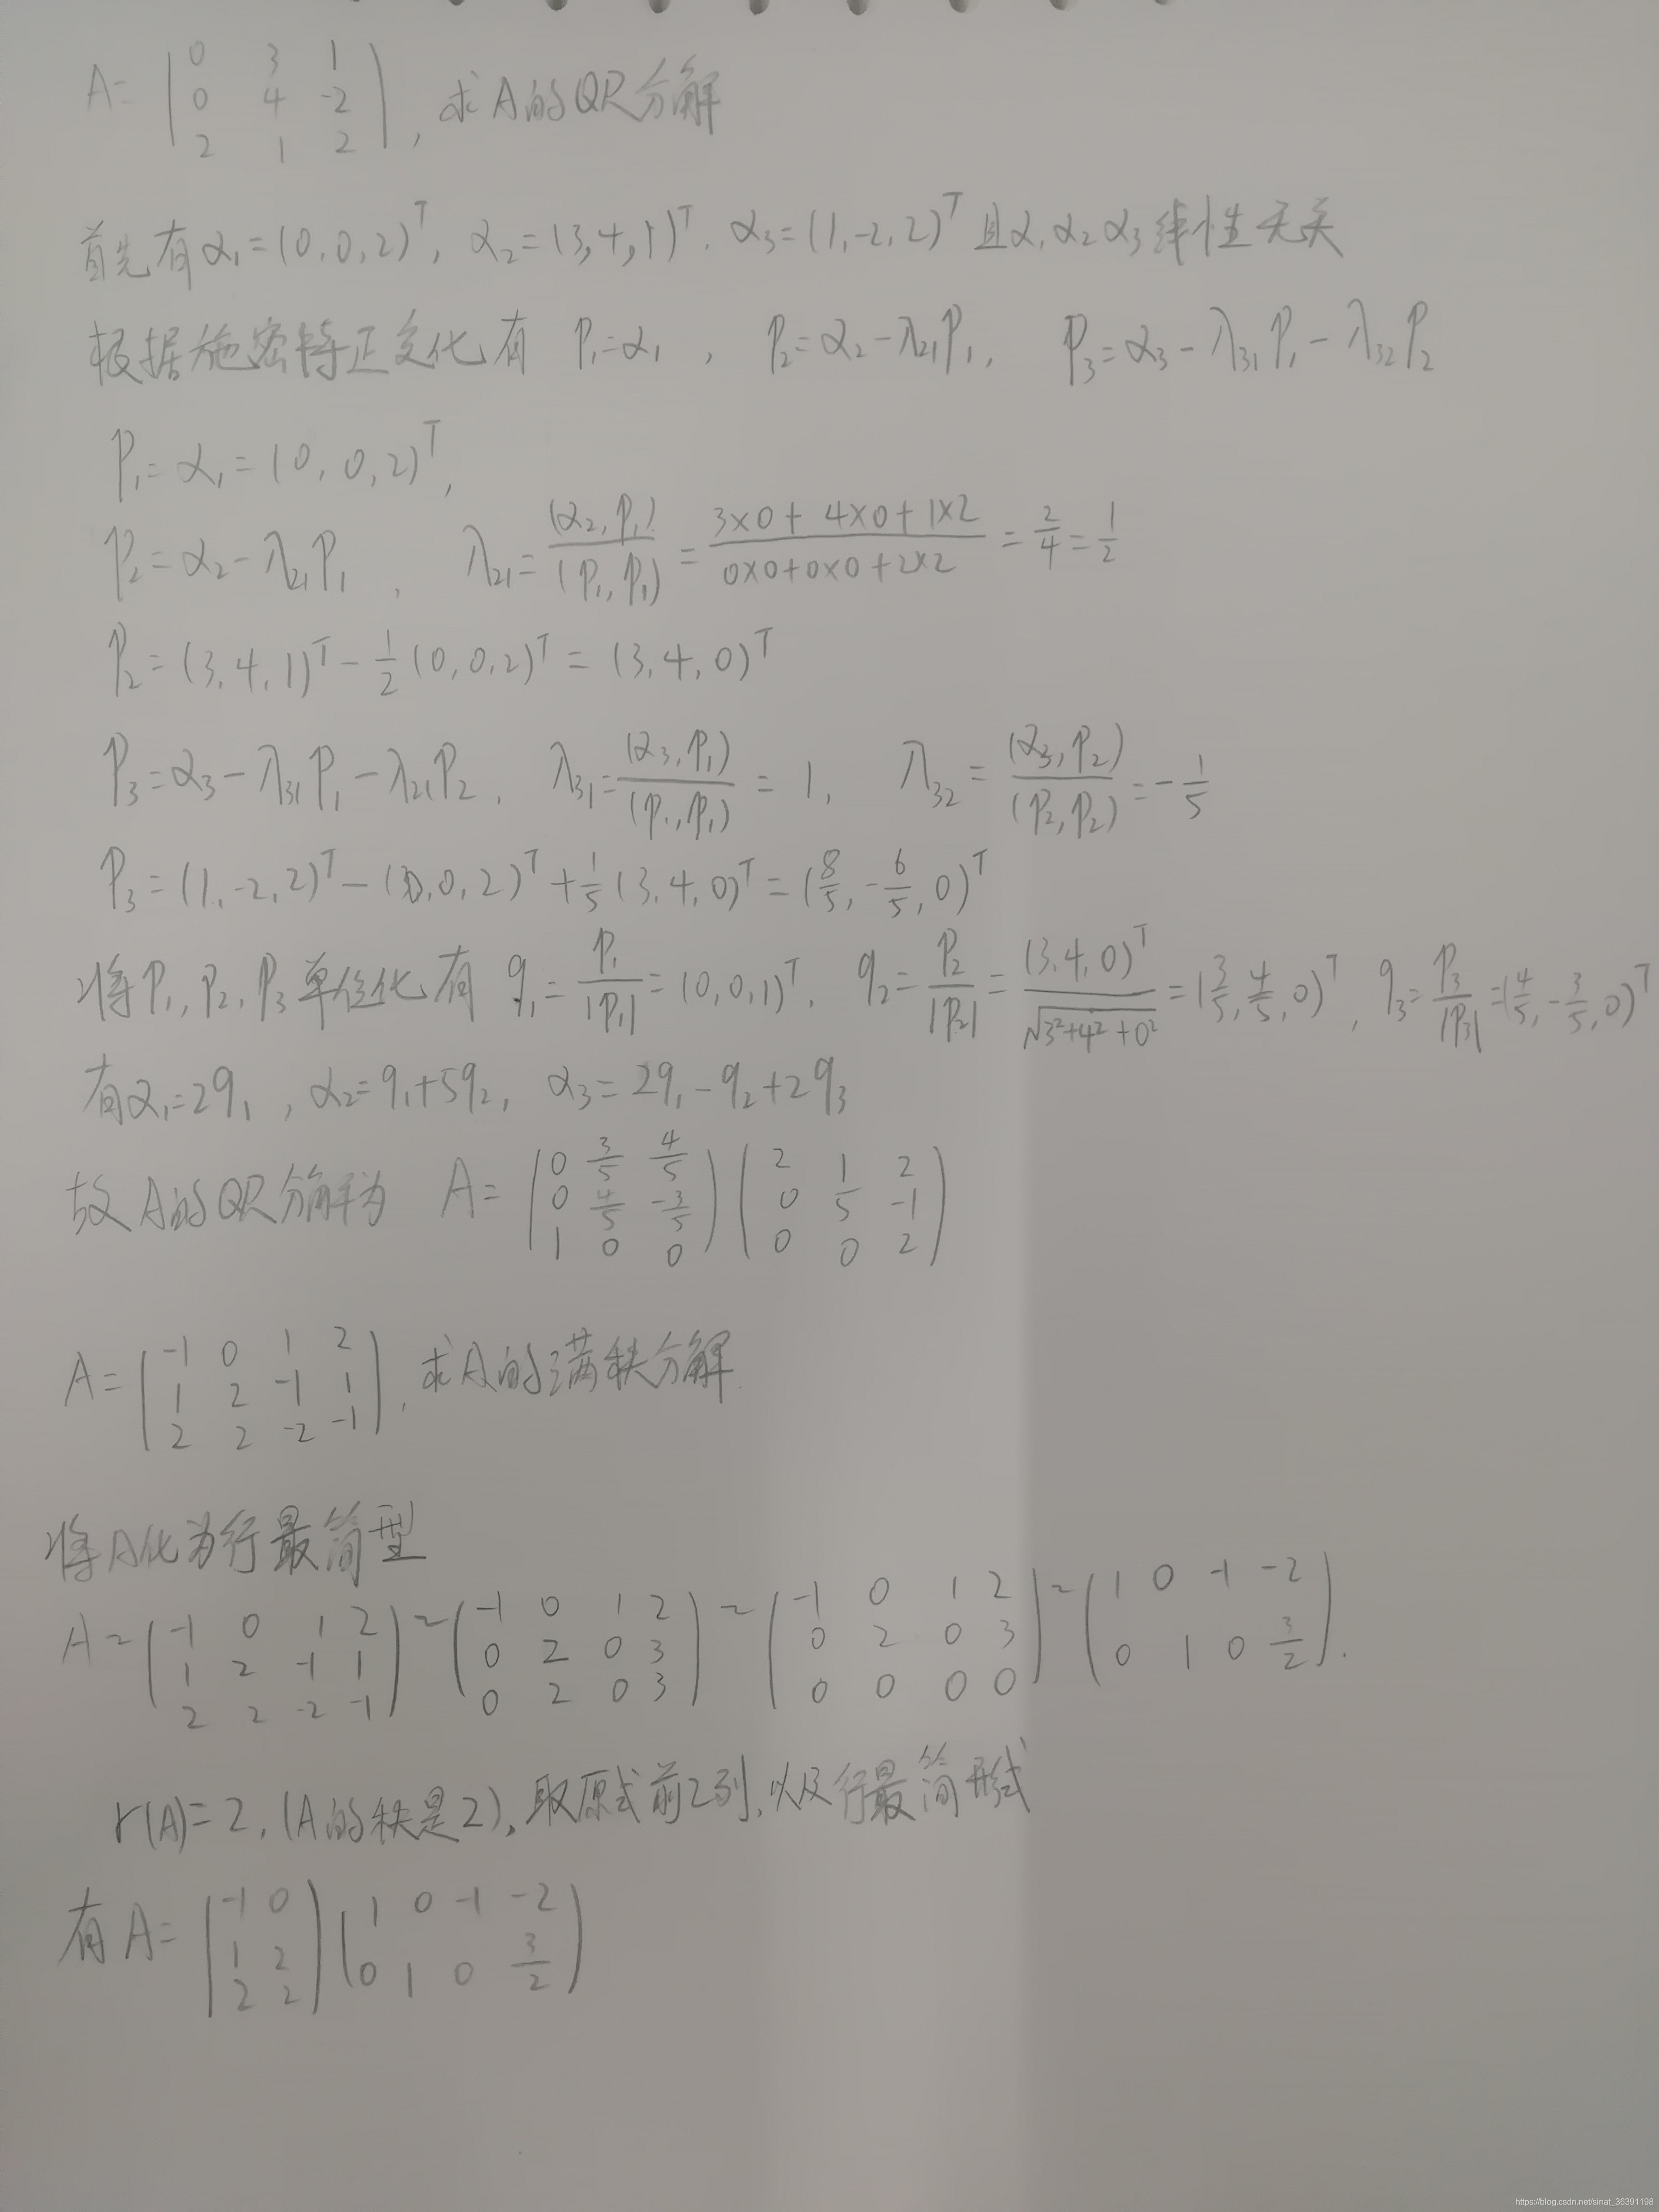 A = ( 0 3 1
0 4 -2
2 1 2 ), 求A的QR分解
首先有α₁=(0,0,2)ᵀ, α₂=(3,4,1)ᵀ, α₃=(1,-2,2)ᵀ 且α₁α₂α₃线性无关
根据施密特正交化有 P₁=α₁, P₂=α₂-λ₂₁P₁, P₃=α₃-λ₃₁P₁-λ₃₂P₂
P₁=α₁=(0,0,2)ᵀ,
P₂=α₂-λ₂₁P₁, λ₂₁=(α₂,P₁)/(P₁,P₁)=(3×0+4×0+1×2)/(0×0+0×0+2×2)=2/4=1/2
P₂=(3,4,1)ᵀ-1/2(0,0,2)ᵀ=(3,4,0)ᵀ
P₃=α₃-λ₃₁P₁-λ₂₁P₂, λ₃₁=(α₃,P₁)/(P₁,P₁)=1, λ₃₂=(α₃,P₂)/(P₂,P₂)=-1/5
P₃=(1,-2,2)ᵀ-(0,0,2)ᵀ+1/5(3,4,0)ᵀ=(8/5,-6/5,0)ᵀ
将P₁,P₂,P₃单位化有 q₁=P₁/|P₁|=(0,0,1)ᵀ, q₂=P₂/|P₂|=(3,4,0)ᵀ/√(3²+4²+0²)=(3/5,4/5,0)ᵀ, q₃=P₃/|P₃|=(4/5,-3/5,0)ᵀ
有α₁=2q₁, α₂=q₁+5q₂, α₃=2q₁-q₂+2q₃
故A的QR分解为 A= ( 0 3/5 4/5 ) ( 2 1 2 )
( 0 4/5 -3/5 ) ( 0 5 -1 )
( 1 0 0 ) ( 0 0 2 )
A= ( -1 0 1 2
1 2 -1 1
2 2 -2 -1 ), 求A的满秩分解
将A化为行最简型
A ~ ( -1 0 1 2 ) ~ ( -1 0 1 2 ) ~ ( -1 0 1 2 ) ~ ( 1 0 -1 -2 )
( 1 2 -1 1 ) ( 0 2 0 3 ) ( 0 2 0 3 ) ( 0 1 0 3/2 ).
( 2 2 -2 -1 ) ( 0 2 0 3 ) ( 0 0 0 0 )
r(A)=2, (A的秩是2), 取原式前2列, 以及行最简形式
有A= ( -1 0 ) ( 1 0 -1 -2 )
( 1 2 ) ( 0 1 0 3/2 )
( 2 2 )
https://blog.csdn.net/sinat_36391198